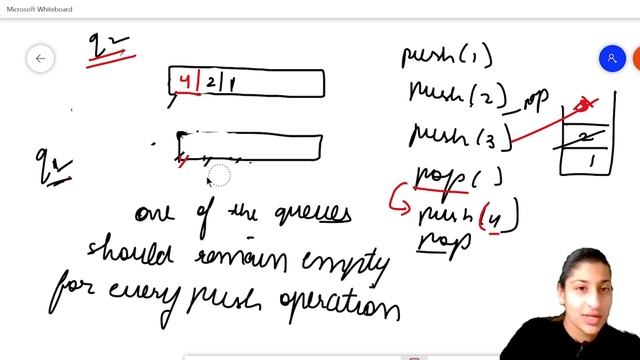 Microsoft Whiteboard
q2
4 2 1
q1
one of the queues
should remain empty
for every push operation
push(1)
push(2) pop
push(3)
pop()
push(4)
pop
3
2
1